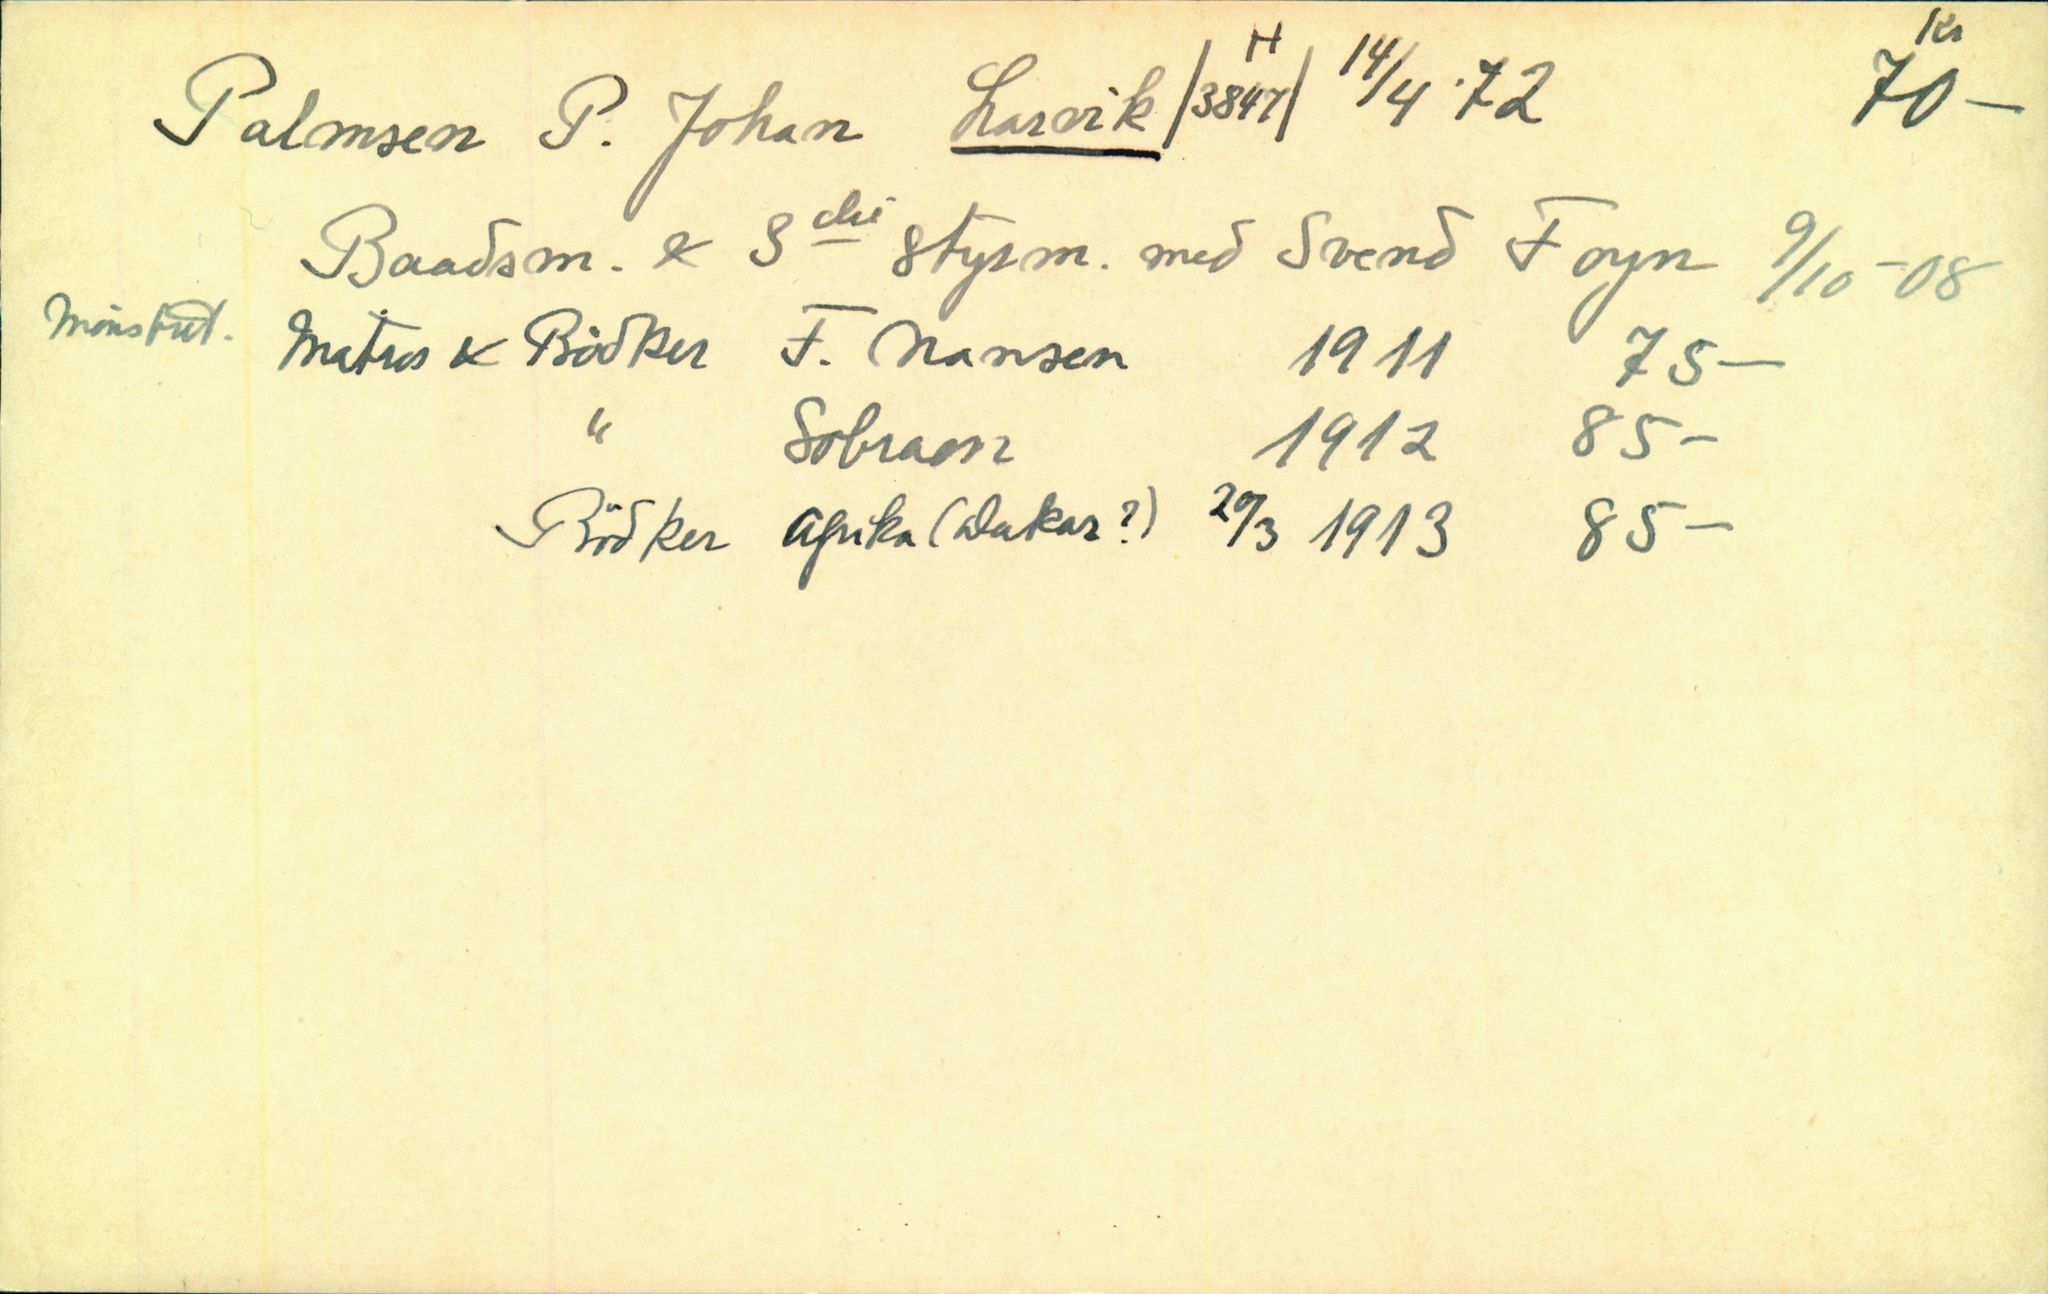 Palmsen P. Johan Larvik |3847| H 14/4.72 Kr 70 —
Baadsm. & 3die styrm. med Svend Foyn 9/10 - 08
Mönst. ut. Matros & Bödker F. Nansen 1911 75 —
" Sobraon 1912 85 -
Bödker Afrika (Dakar?) 20/3 1913 85 —